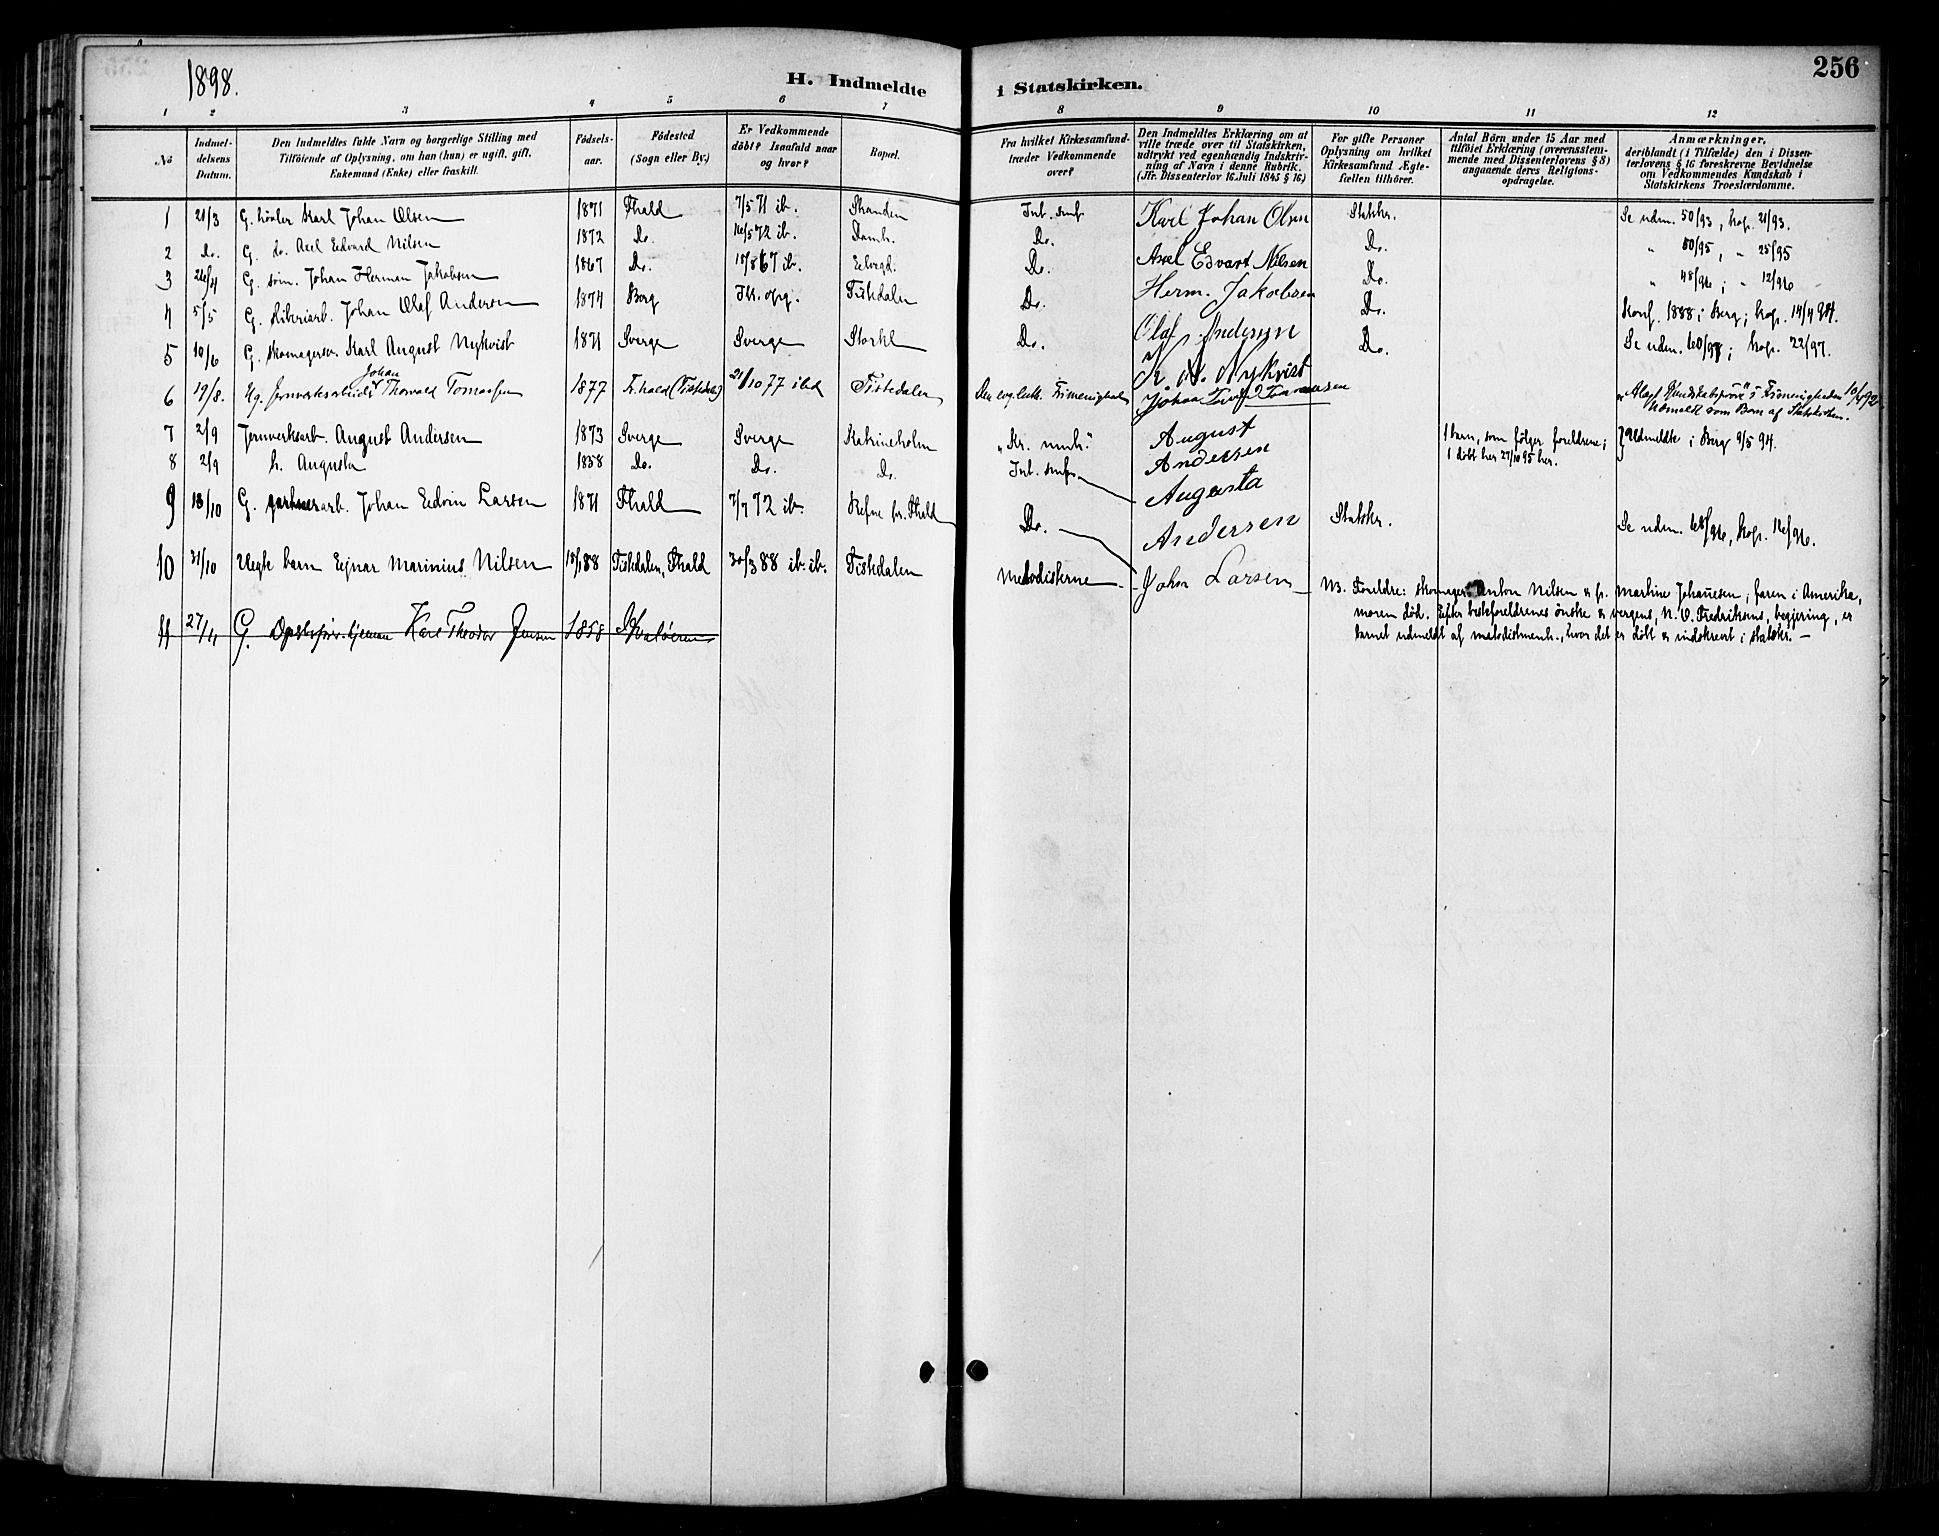 1898.
H. Indmeldte i Statskirken.
256
1 2 3 4 5 6 7 8 9 10 11 12
No
Indmel-
delsens
Datum.
Den Indmeldtes fulde Navn og borgerlige Stilling med
Tilføiende af Oplysning, om han (hun) er ugift, gift,
Enkemand (Enke) eller fraskilt.
Fødsels-
aar.
Fødested
(Sogn eller By.)
Er Vedkommende
døbt? Isaafald naar
og hvor?
Bopæl.
Fra hvilket Kirkesamfund
træder Vedkommende
over?
Den Indmeldtes Erklæring om at
ville træde over til Statskirken,
udtrykt ved egenhændig Indskriv-
ning af Navn i denne Rubrik.
(Jfr. Dissenterlov 16. Juli 1845 § 16)
For gifte Personer
Oplysning om hvilket
Kirkesamfund Ægte-
fællen tilhører.
Antal Børn under 15 Aar med
tilføiet Erklæring (overensstem-
mende med Dissenterlovens § 8)
angaaende deres Religions-
opdragelse.
Anmærkninger,
deriblandt (i Tilfælde) den i Dissen-
terlovens § 16 foreskrevne Bevidnelse
om Vedkommendes Kundskab i
Statskirkens Troeslærdomme.
1 21/3 G. høvler Karl Johan Olsen 1871 Fhald 7/5 71 ib. Skanden Int. smf Karl Johan Olsen Statskr. Se udm. 50/93, kop. 21/93.
2 Do. G. do. Axel Edvard Nilsen 1872 Do. 16/5 72 ib. Damh. Do. Axel Edvart Nilsen Do. " 80/95, " 25/95
3 26/4 G. søm. Johan Herman Jakobsen 1867 Do. 18/8 67 ib. Do. Herm. Jakobsen Do. " 48/96; " 12/96
4 5/5 G. sliberiarb. Johan Olaf Andersen 1874 Berg Tistedalen Do. Olaf Andersen Do. Konf. 1888 i Berg; kop. 14/4 94.
5 10/6 G. skomagersv. Karl August Nykvist 1871 Sverge Sverge Do. K. A. Nykvist Do. Se udm. 60/97; kop. 22/97.
6 19/8. Ug. Jernverksarbeider Johan Thorvald Tomassen 1877 Fr.hald (Tistedalen) 21/10 77 ibd Tistedalen Den evg. luth. Frimenighed Johan Tomassen
Aflagt Kundskabsprøve i Frimenigheden 10/4 92
Udmeldt som Barn af Statskirken.
7 2/9 Jernverksarb. August Andersen 1873 Sverge Sverge Katrineholm "Kr. menh." August Andersen 1 barn, som følger foreldrene; Udmeldte i Berg 9/5 94.
8 2/9 h. Augusta 1858 Do. Do. Do. Int. smf. Augusta Andersen 1 døbt her 27/10 95 her.
9 18/10 G. arb. Johan Edvin Larsen 1871 Fhald 7/7 72 ib. Refne pr. Fhald Do. John Larsen Statskr. Se udm. 68/96, kop. 16/96.
10 31/10 Uegte barn Ejnar Marinius Nilsen 18/1 88 Tistedalen, Fhald 30/3 88 ib. ib. Tistedalen Metodisterne
NB. Foreldre: skomager Anton Nilsen & fr. Martine Johannesen; faren i Amerika,
moren død. Efter bedsteforeldrenes ønske & vergens, N. O. Fredriksens, begjering, er
barnet udmeldt af metodistmenh., hvor det er døbt & indskrevet i statskr. —
11 27/11 G. Karl Theodor Jensen 1858 Hvaløerne